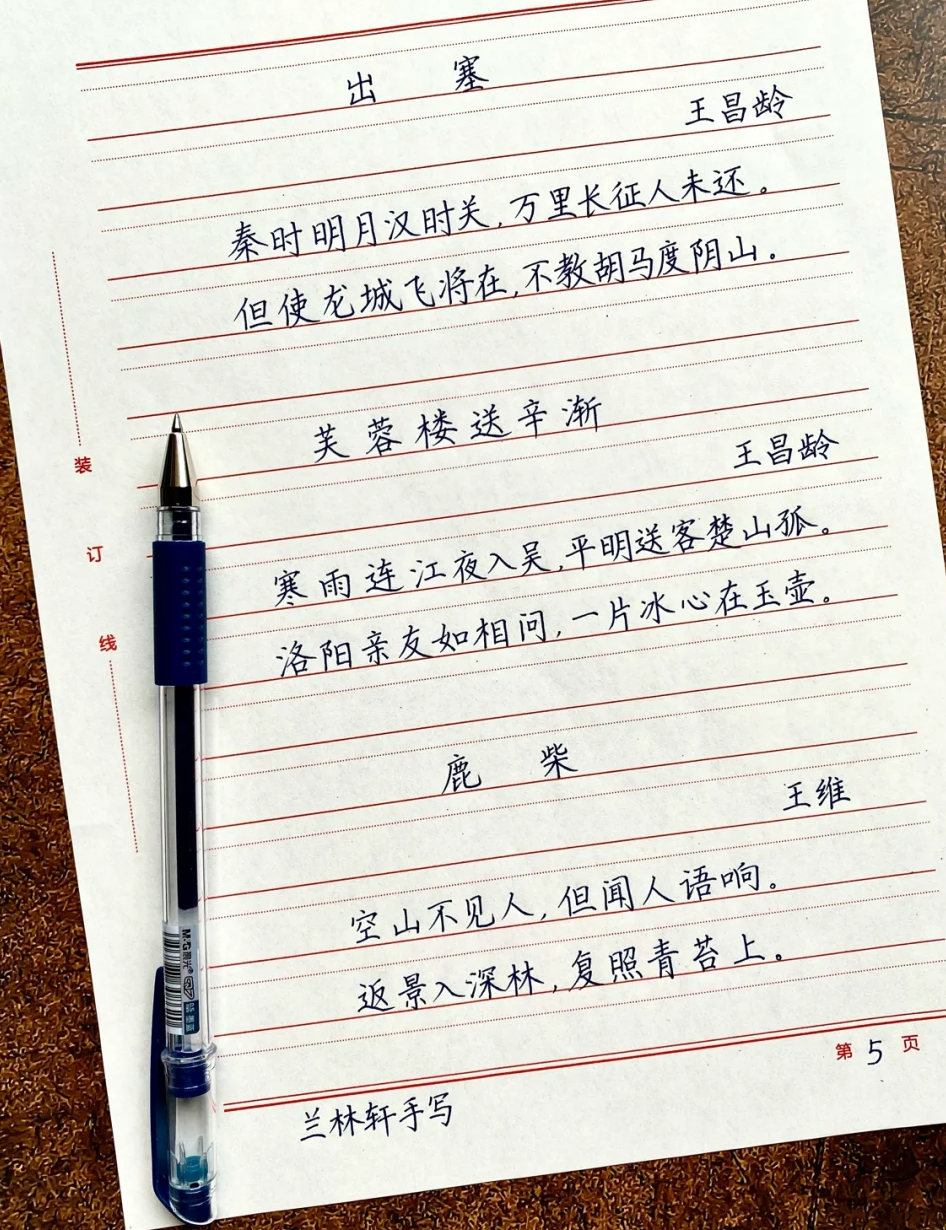 出 塞
王昌龄
秦时明月汉时关,万里长征人未还。
但使龙城飞将在,不教胡马度阴山。
芙蓉楼送辛渐
王昌龄
寒雨连江夜入吴,平明送客楚山孤。
洛阳亲友如相问,一片冰心在玉壶。
鹿 柴
王维
空山不见人,但闻人语响。
返景入深林,复照青苔上。
第 5 页
兰林轩手写
装
订
线
M&G晨光